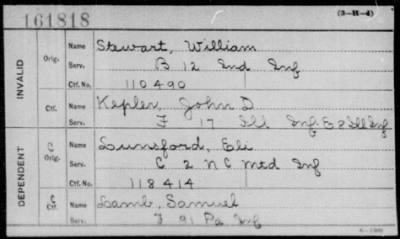 161818
(3-H-4)
INVALID
Orig.
Name Stewart, William
Serv. B 12 Ind Inf
Ctf. No. 110490
Ctf.
Name Kepler, John D
Serv. F 17 Ill Inf E 8 Ill Inf
DEPENDENT
C Orig.
Name Lunsford, Eli
Serv. C 2 N C Mtd Inf
Ctf. No. 118414
C Ctf.
Name Lamb, Samuel
Serv. I 91 Pa Inf